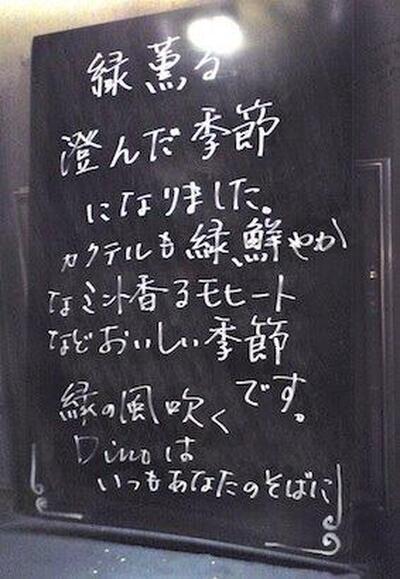 緑薫る
澄んだ季節
になりました。
カクテルも緑鮮やか
なミント香るモヒート
などおいしい季節
です。
緑の風吹く
Dinoは
いつもあなたのそばに